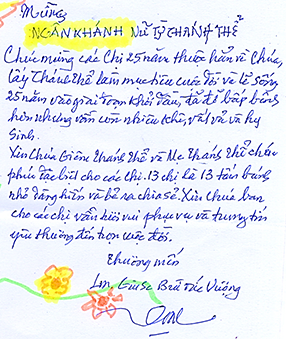 Mừng
NGÂN KHÁNH NỮ TỲ THÁNH THỂ
Chúc mừng các Chị 25 năm thuộc hẳn về Chúa,
Lấy Thánh Thể làm mục tiêu cuộc đời và lẽ sống
25 năm vào giai đoạn khởi đầu, đã đỡ bấp bênh
hơn nhưng vẫn còn nhiều khó, vất vả và hy
sinh.
Xin Chúa Giêsu Thánh Thể và Mẹ Thánh Thể chúc
phúc đặc biệt cho các chị. 13 chị là 13 tấm bánh
nhỏ dâng hiến và bẻ ra chia sẻ. Xin Chúa ban
cho các chị vẫn luôn vui phục vụ và trung tín
yêu thương đến trọn cuộc đời.
Thương mến
Lm. Giuse Bùi Đức Vượng